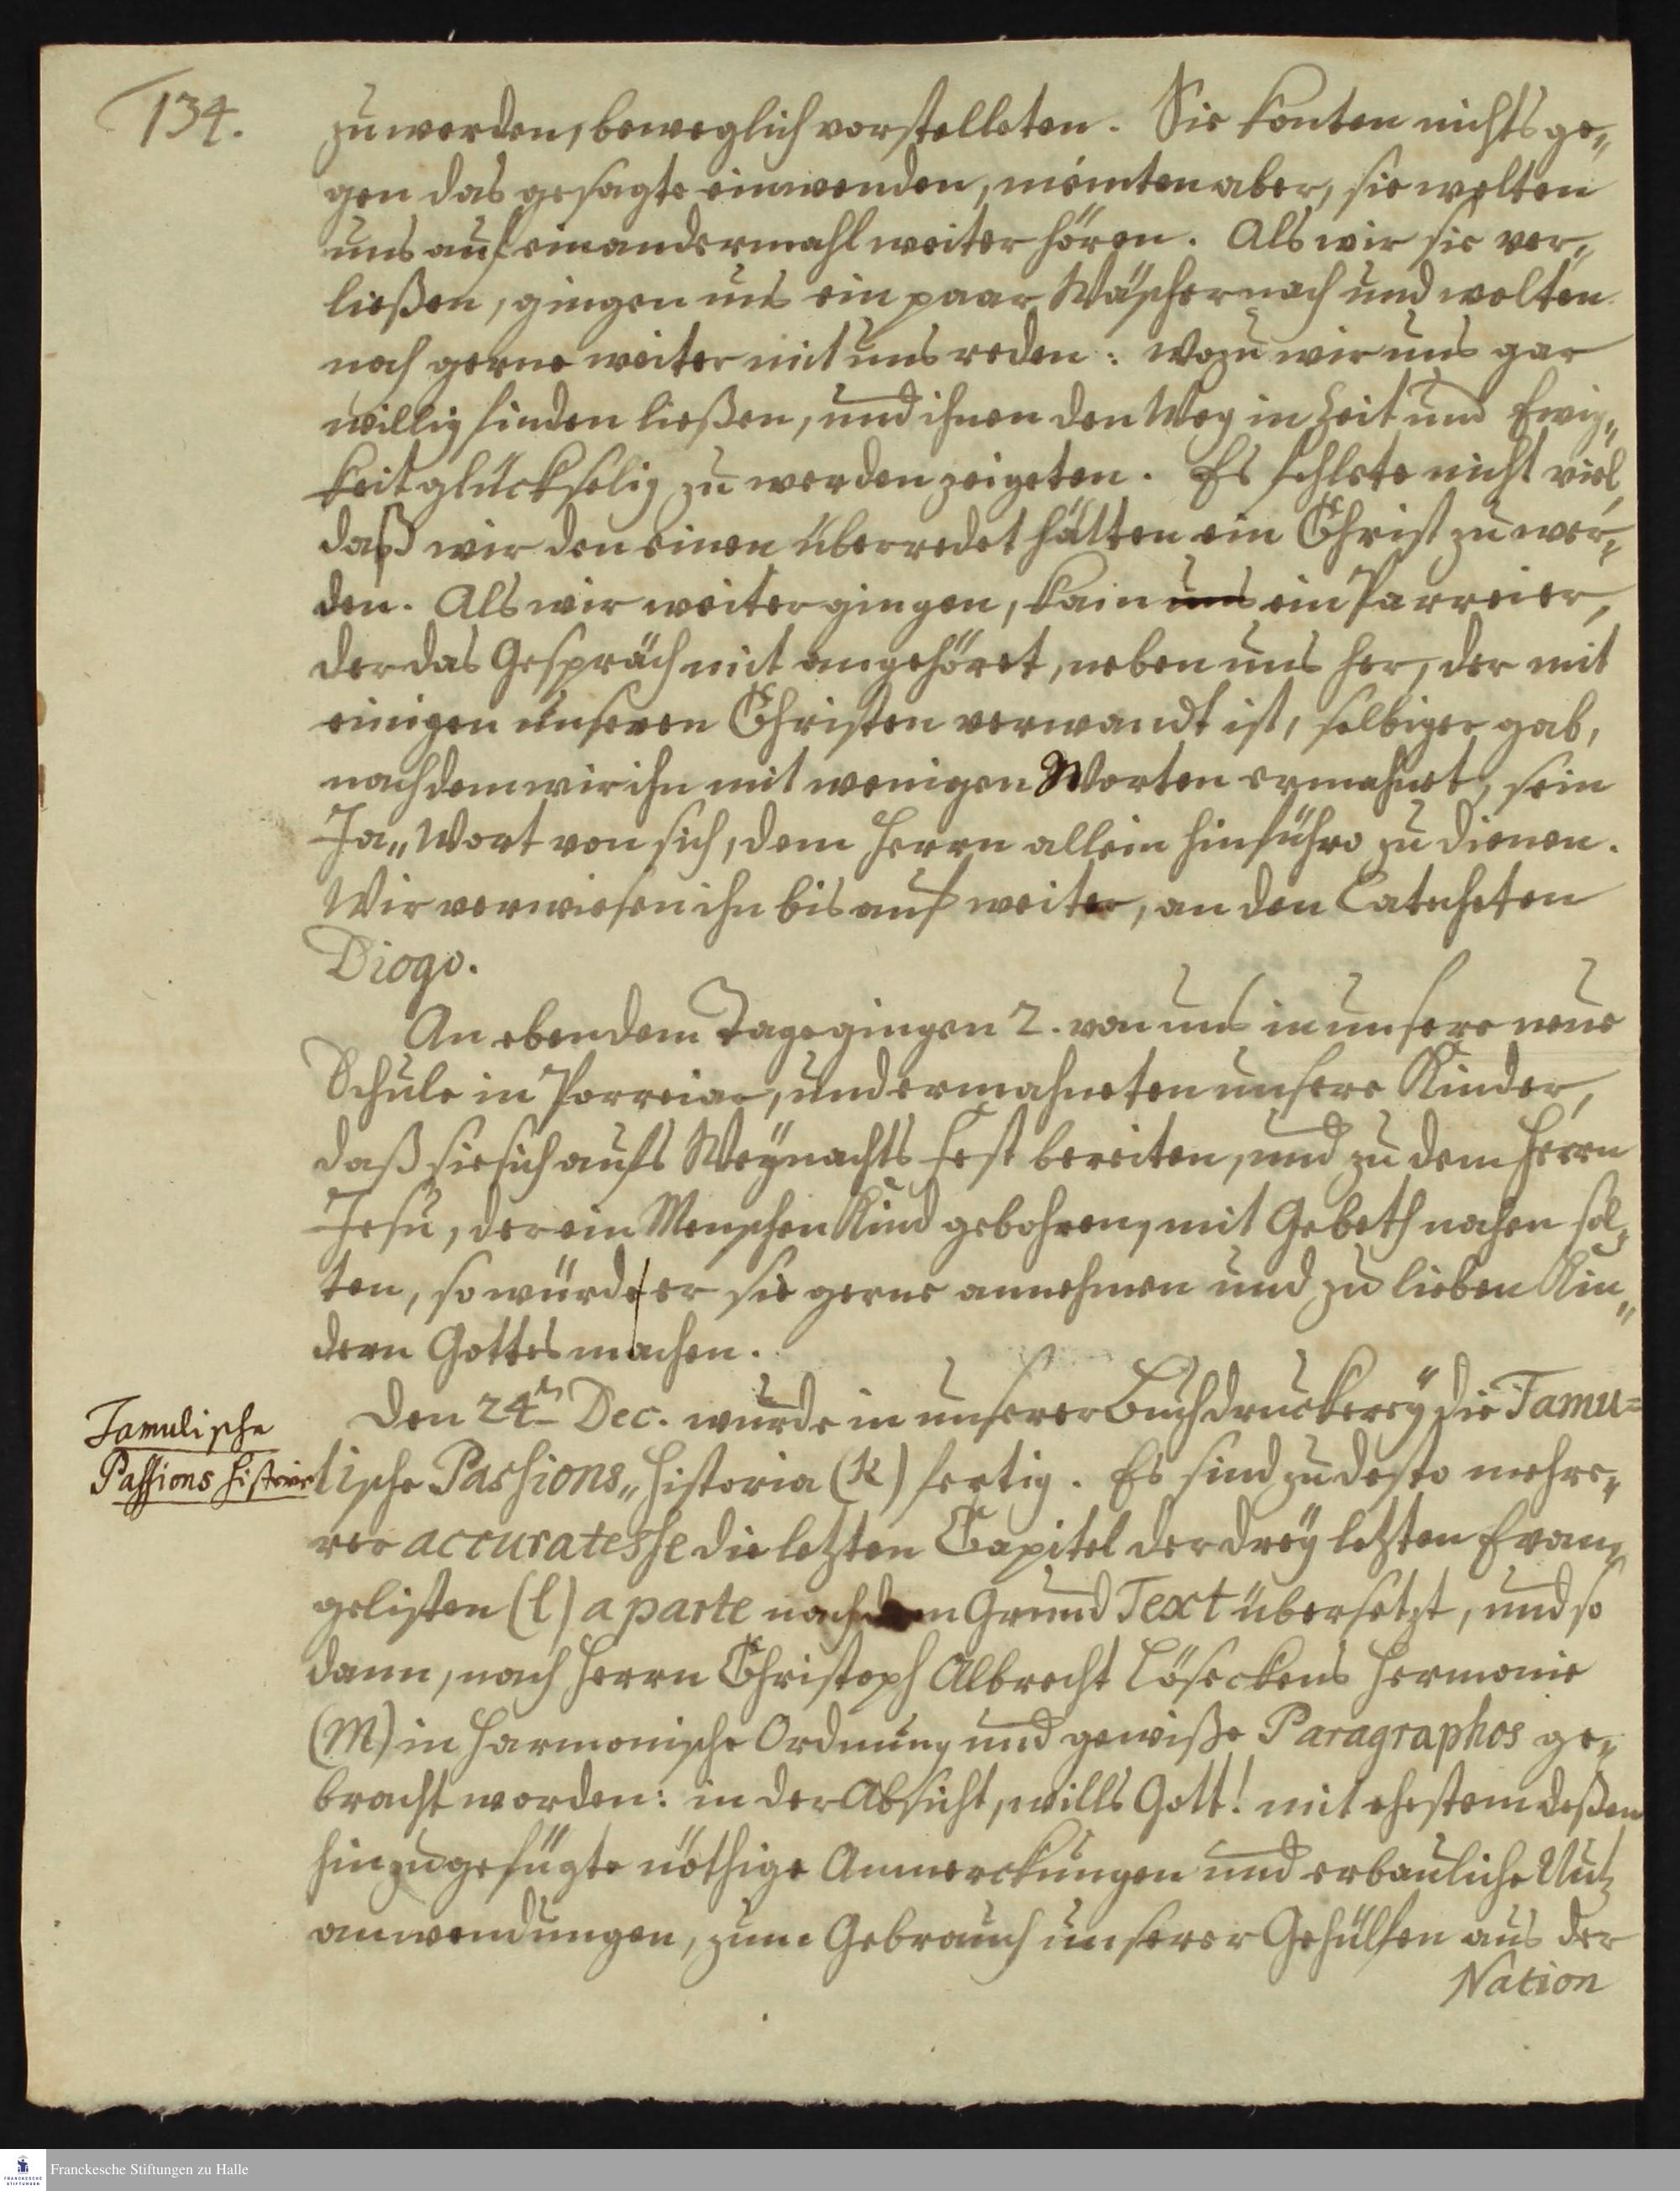 134.
zu werden, beweglich vorstelleten. Sie konten nichts ge„
gen das gesagte einwenden, meinten aber, sie wolten
uns auf ein andermahl weiter hören. Als wir sie ver„
ließen, gingen uns ein paar Wäscher nach und wolten
noch gerne weiter mit uns reden: wozu wir uns gar
willig finden ließen, und ihnen den Weg in Zeit und Ewig„
keit glückselig zu werden zeigeten. Es fehlete nicht viel,
daß wir den einen überredet hätten ein Christ zu wer„
den. Als wir weiter gingen, kam uns ein Parreier,
der das Gespräch mit angehöret, neben uns her, der mit
einigen unseren Christen verwandt ist, selbiger gab,
nachdem wir ihn mit wenigen Worten ermahnet, sein
Ja„Wort von sich, dem Herrn allein hinführo zu dienen.
Wir verwiesen ihn bis auf weiter, an den Catecheten
Diogo.
An eben dem Tage gingen 2. von uns in unsere neue
Schule in Porreiar, und ermahneten unsere Kinder,
daß sie sich aufs Weynachts Fest bereiten, und zu dem Herrn
Jesu, der ein Menschen Kind gebohren, mit Gebeth nahen sol„
ten, so würde er sie gerne annehmen und zu lieben Kin„
dern Gottes machen.
Den 24n Dec. wurde in unserer Buchdruckerey die Tamu=
Tamulische
Passions Historie
lische Passions„Historia (k) fertig. Es sind zu desto mehre„
rer accuratesse die letzten Capitel der drey letzten Evan„
gelisten (l) a parte nach dem Grund Text übersetzt, und so
dann, nach Herrn Christoph Albrecht Löseckens Hermonie
(M) in Harmonische Ordnung und gewiße Paragraphos ge„
bracht worden: in der Absicht, wills Gott! mit ehestem deßen
hinzugefügte nöthige Anmerckungen und erbauliche Nutz
anwendungen, zum Gebrauch unserer Gehülfen aus der
Nation
Franckesche Stiftungen zu Halle